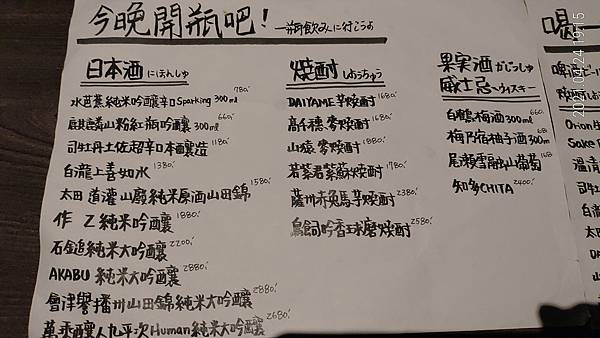 今晚開瓶吧! 一瓶飲みに行こうよ
日本酒 にほんしゅ
水芭蕉純米吟釀辛口Sparking 300ml 780.-
麒麟山粉紅瓶吟釀 300ml 660.-
司牡丹土佐超辛口本釀造 1180.-
白瀧上善如水 1380.-
太田道灌 山廢純米原酒山田錦 1580.-
作 Z 純米吟釀 1880.-
石鎚純米大吟釀 2200.-
AKABU 純米大吟釀 2880.-
會津譽播州山田錦純米大吟釀 2880.-
萬乘釀人九平次Human純米大吟釀 2680.-
燒酎 しょうちゅう
DAIYAME芋燒酎 1680.-
高千穗 麥燒酎 1680.-
山猿 麥燒酎 1880.-
若紫君紫蘇燒酎 1780.-
薩州赤兔馬芋燒酎 2380.-
鳥飼吟香球磨燒酎 2580.-
果実酒 かじつしゅ
威士忌 ウイスキー
白鶴梅酒 300ml 660.-
梅乃宿柚子酒 300m
尾瀬雪融山葡萄
知多CHITA 2400.-
喝一
Orion生
Sake
溫清
日本
太田
DA
2021/04/24 19:15